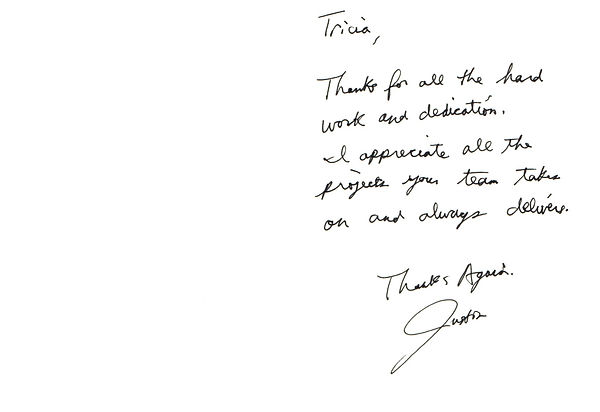 Tricia,
Thanks for all the hard
work and dedication.
I appreciate all the
projects your team takes
on and always delivers.
Thanks Again.
Justin